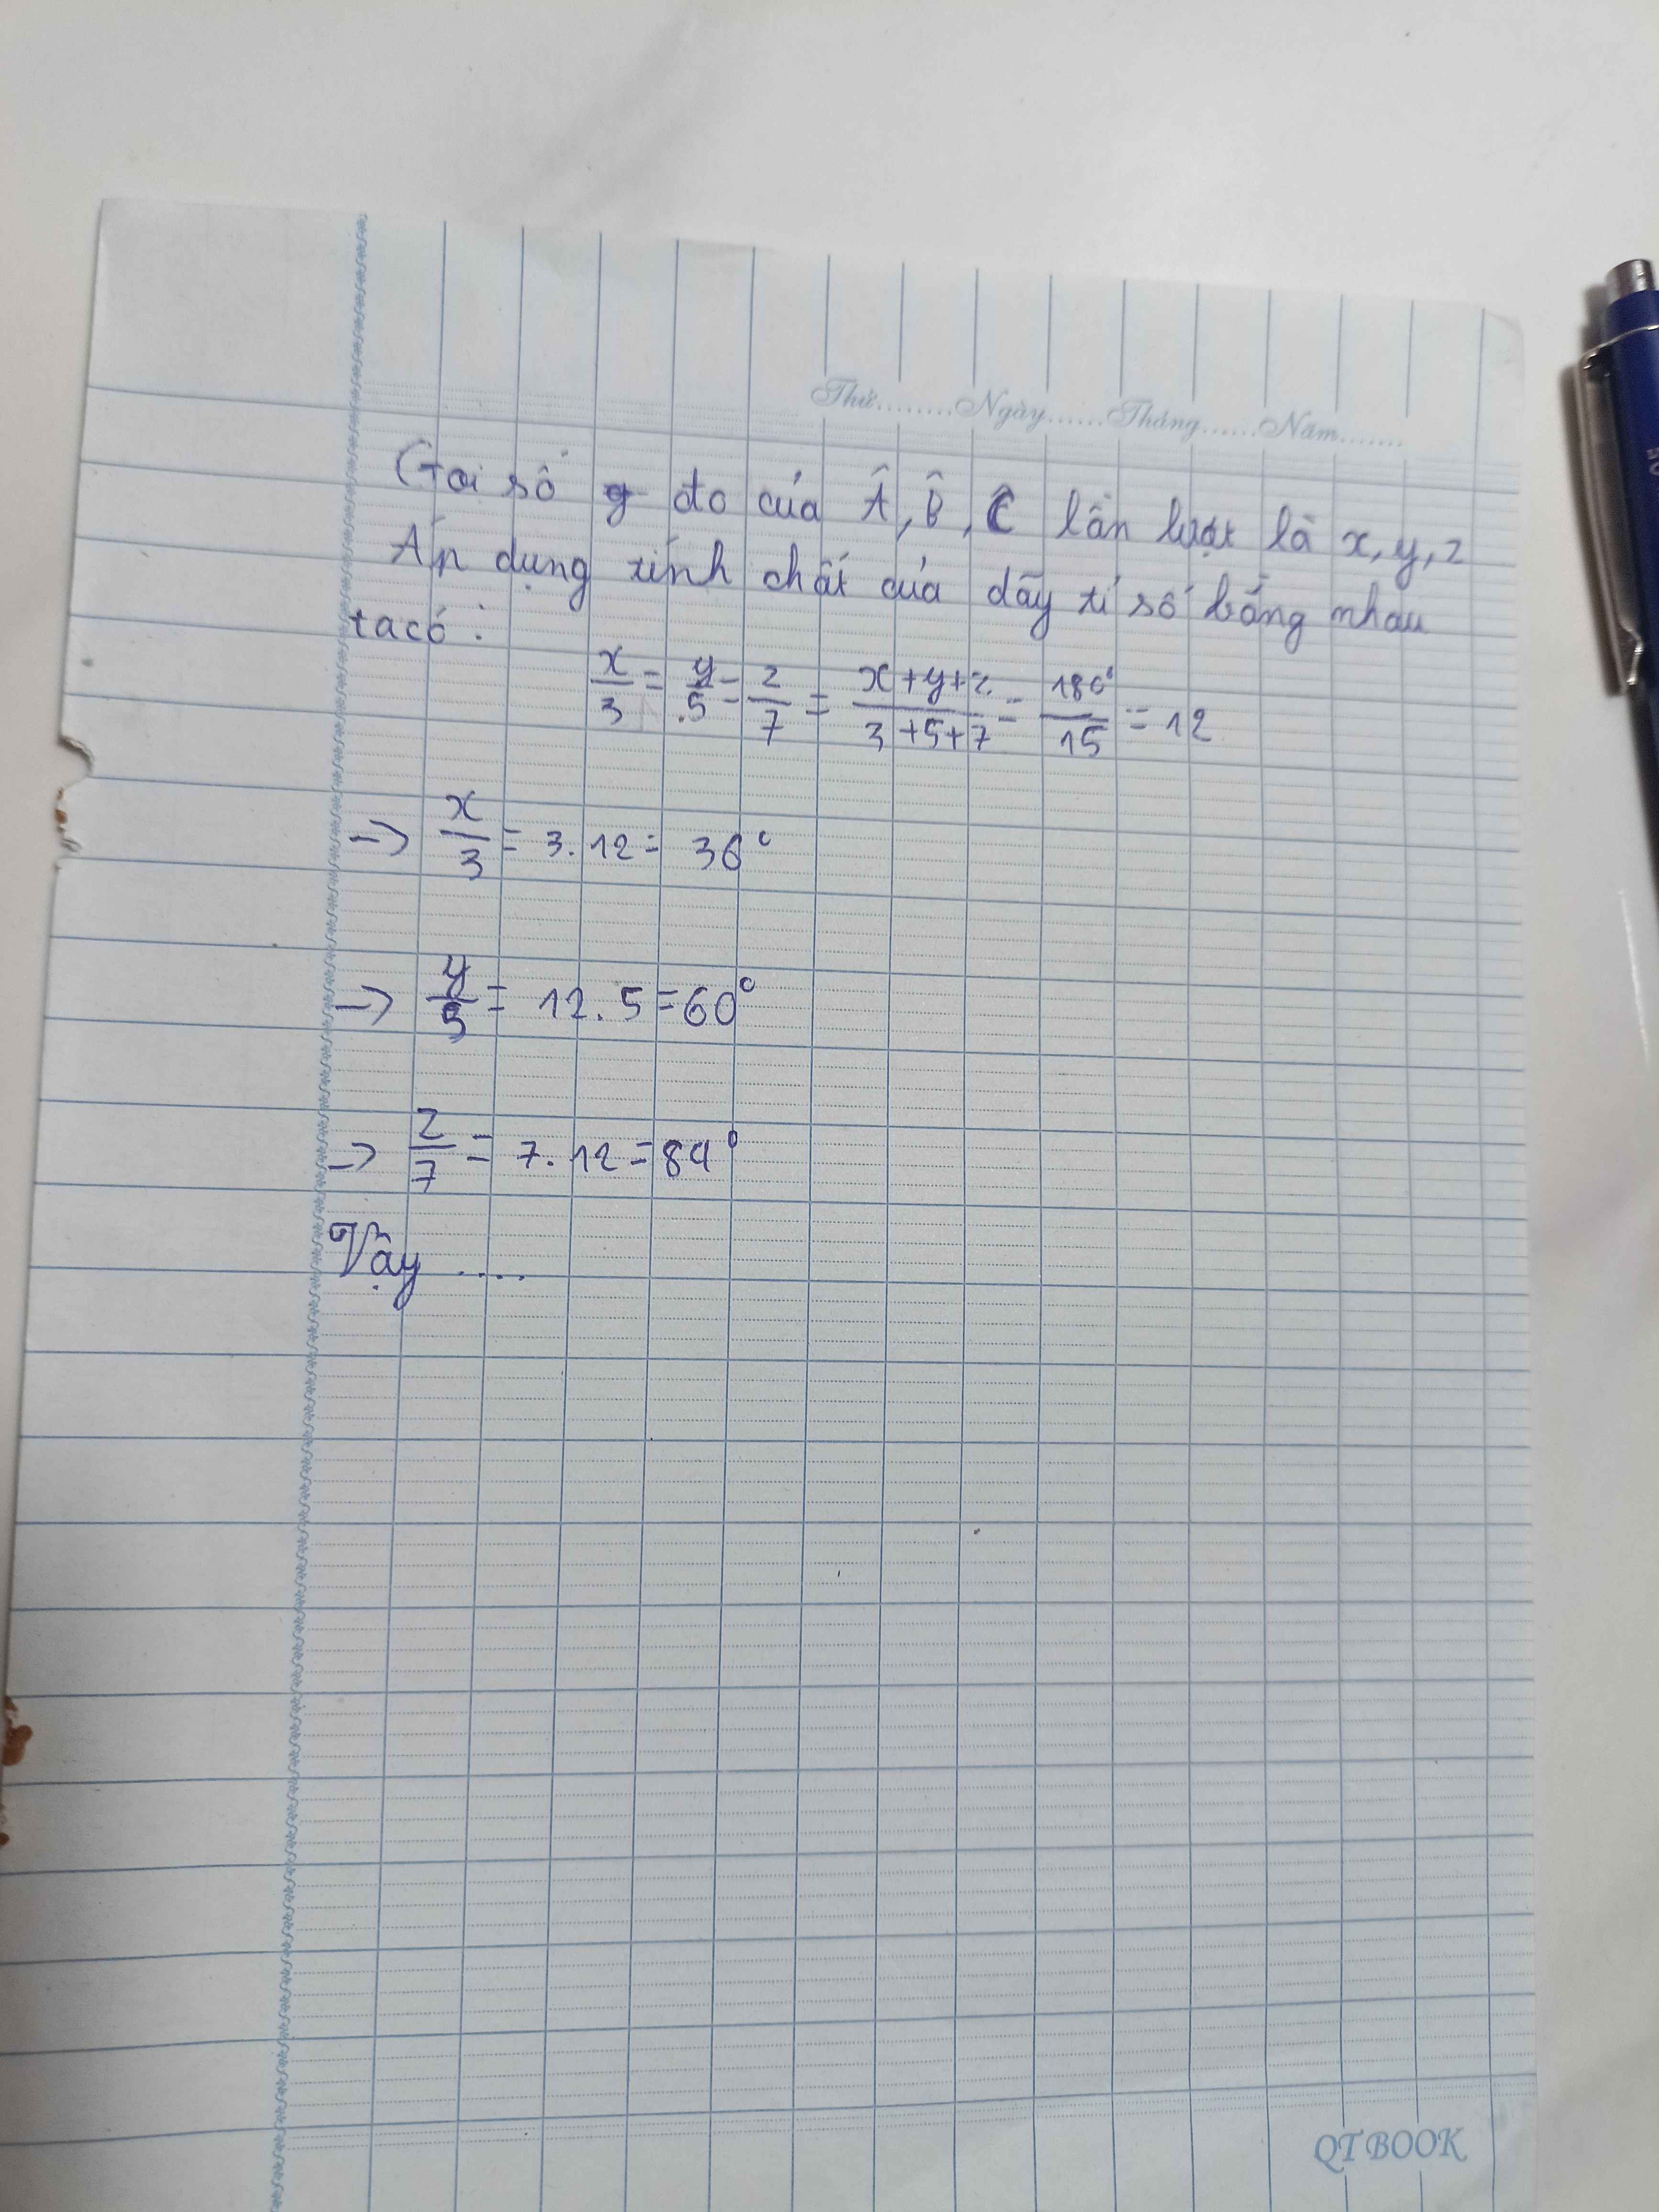 Thứ........Ngày......Tháng......Năm.......
Gọi số g đo của Â, B̂, Ĉ lần lượt là x, y, z
Áp dụng tính chất của dãy tỉ số bằng nhau
ta có :
x/3 = y/5 = z/7 = x+y+z/3+5+7 = 180°/15 = 12
-> x/3 = 3.12 = 36°
-> y/5 = 12.5 = 60°
-> z/7 = 7.12 = 84°
Vậy ....
QT BOOK